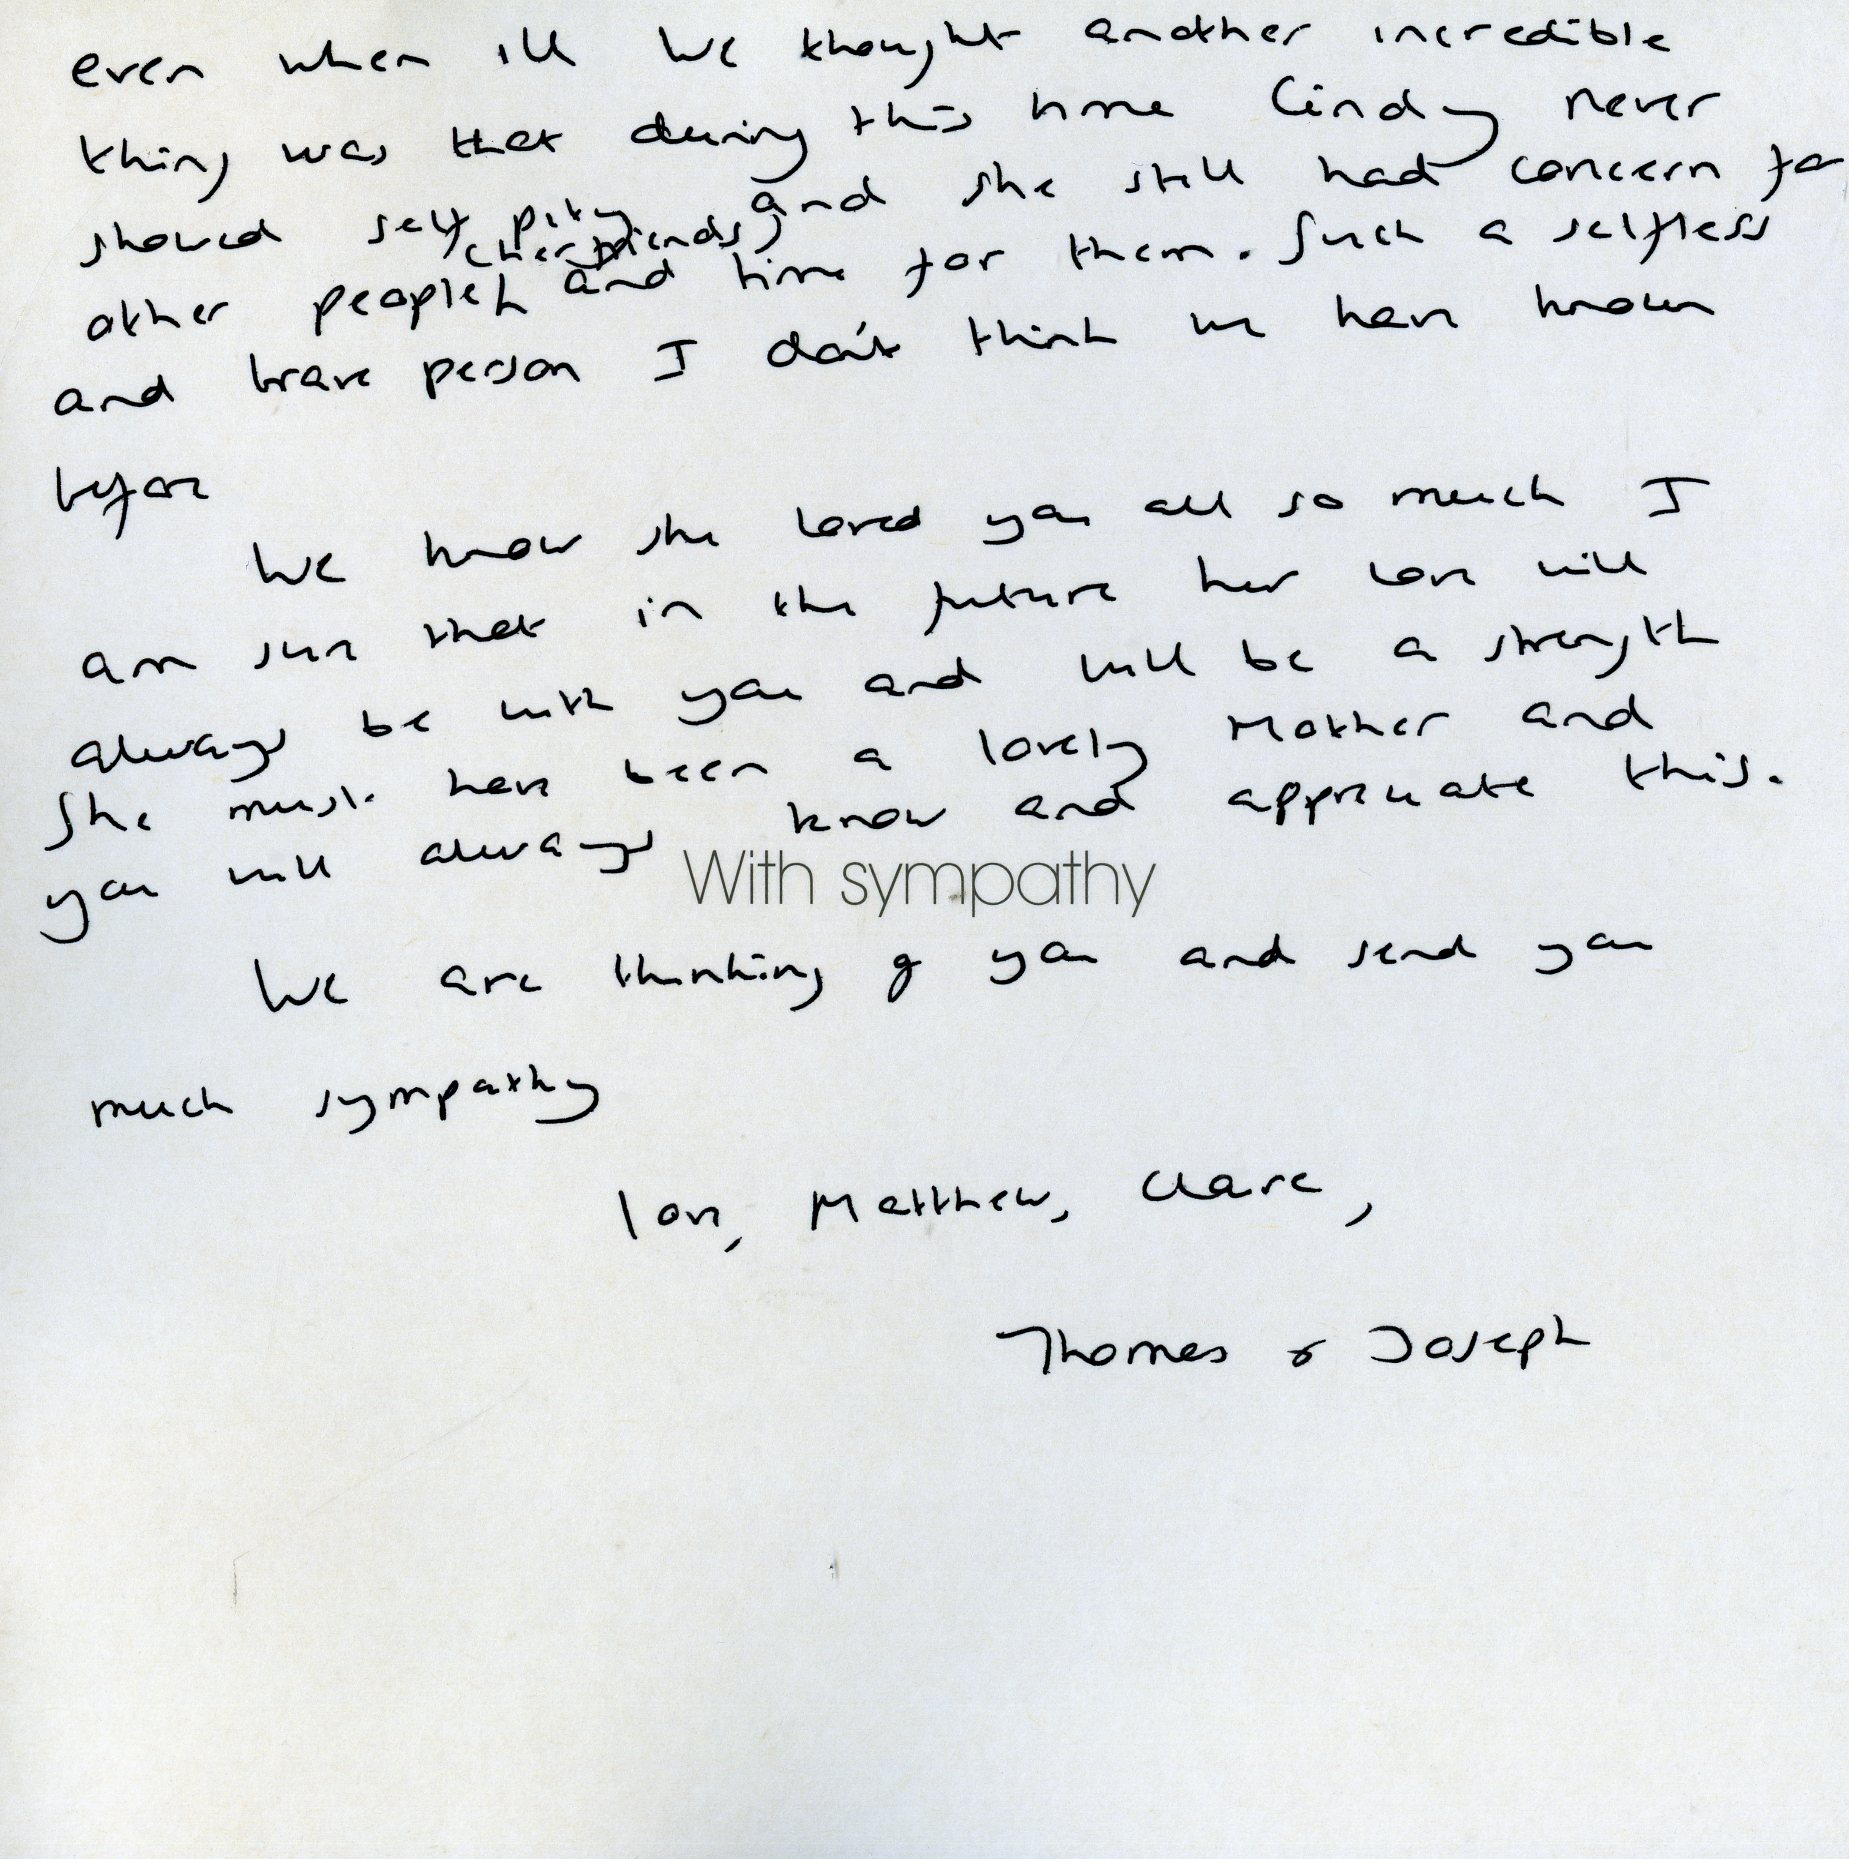 even when ill We thought another incredible
thing was that during this time Cindy never
showed self pity and she still had concern for
(her friends)
other people and time for them. Such a selfless
and brave person I don't think we have known
before
We know she loved you all so much I
am sure that in the future her love will
always be with you and will be a strength
She must have been a lovely Mother and
you will always know and appreciate this.
With sympathy
We are thinking of you and send you
much sympathy
love, Matthew, Clare,
Thomas & Joseph